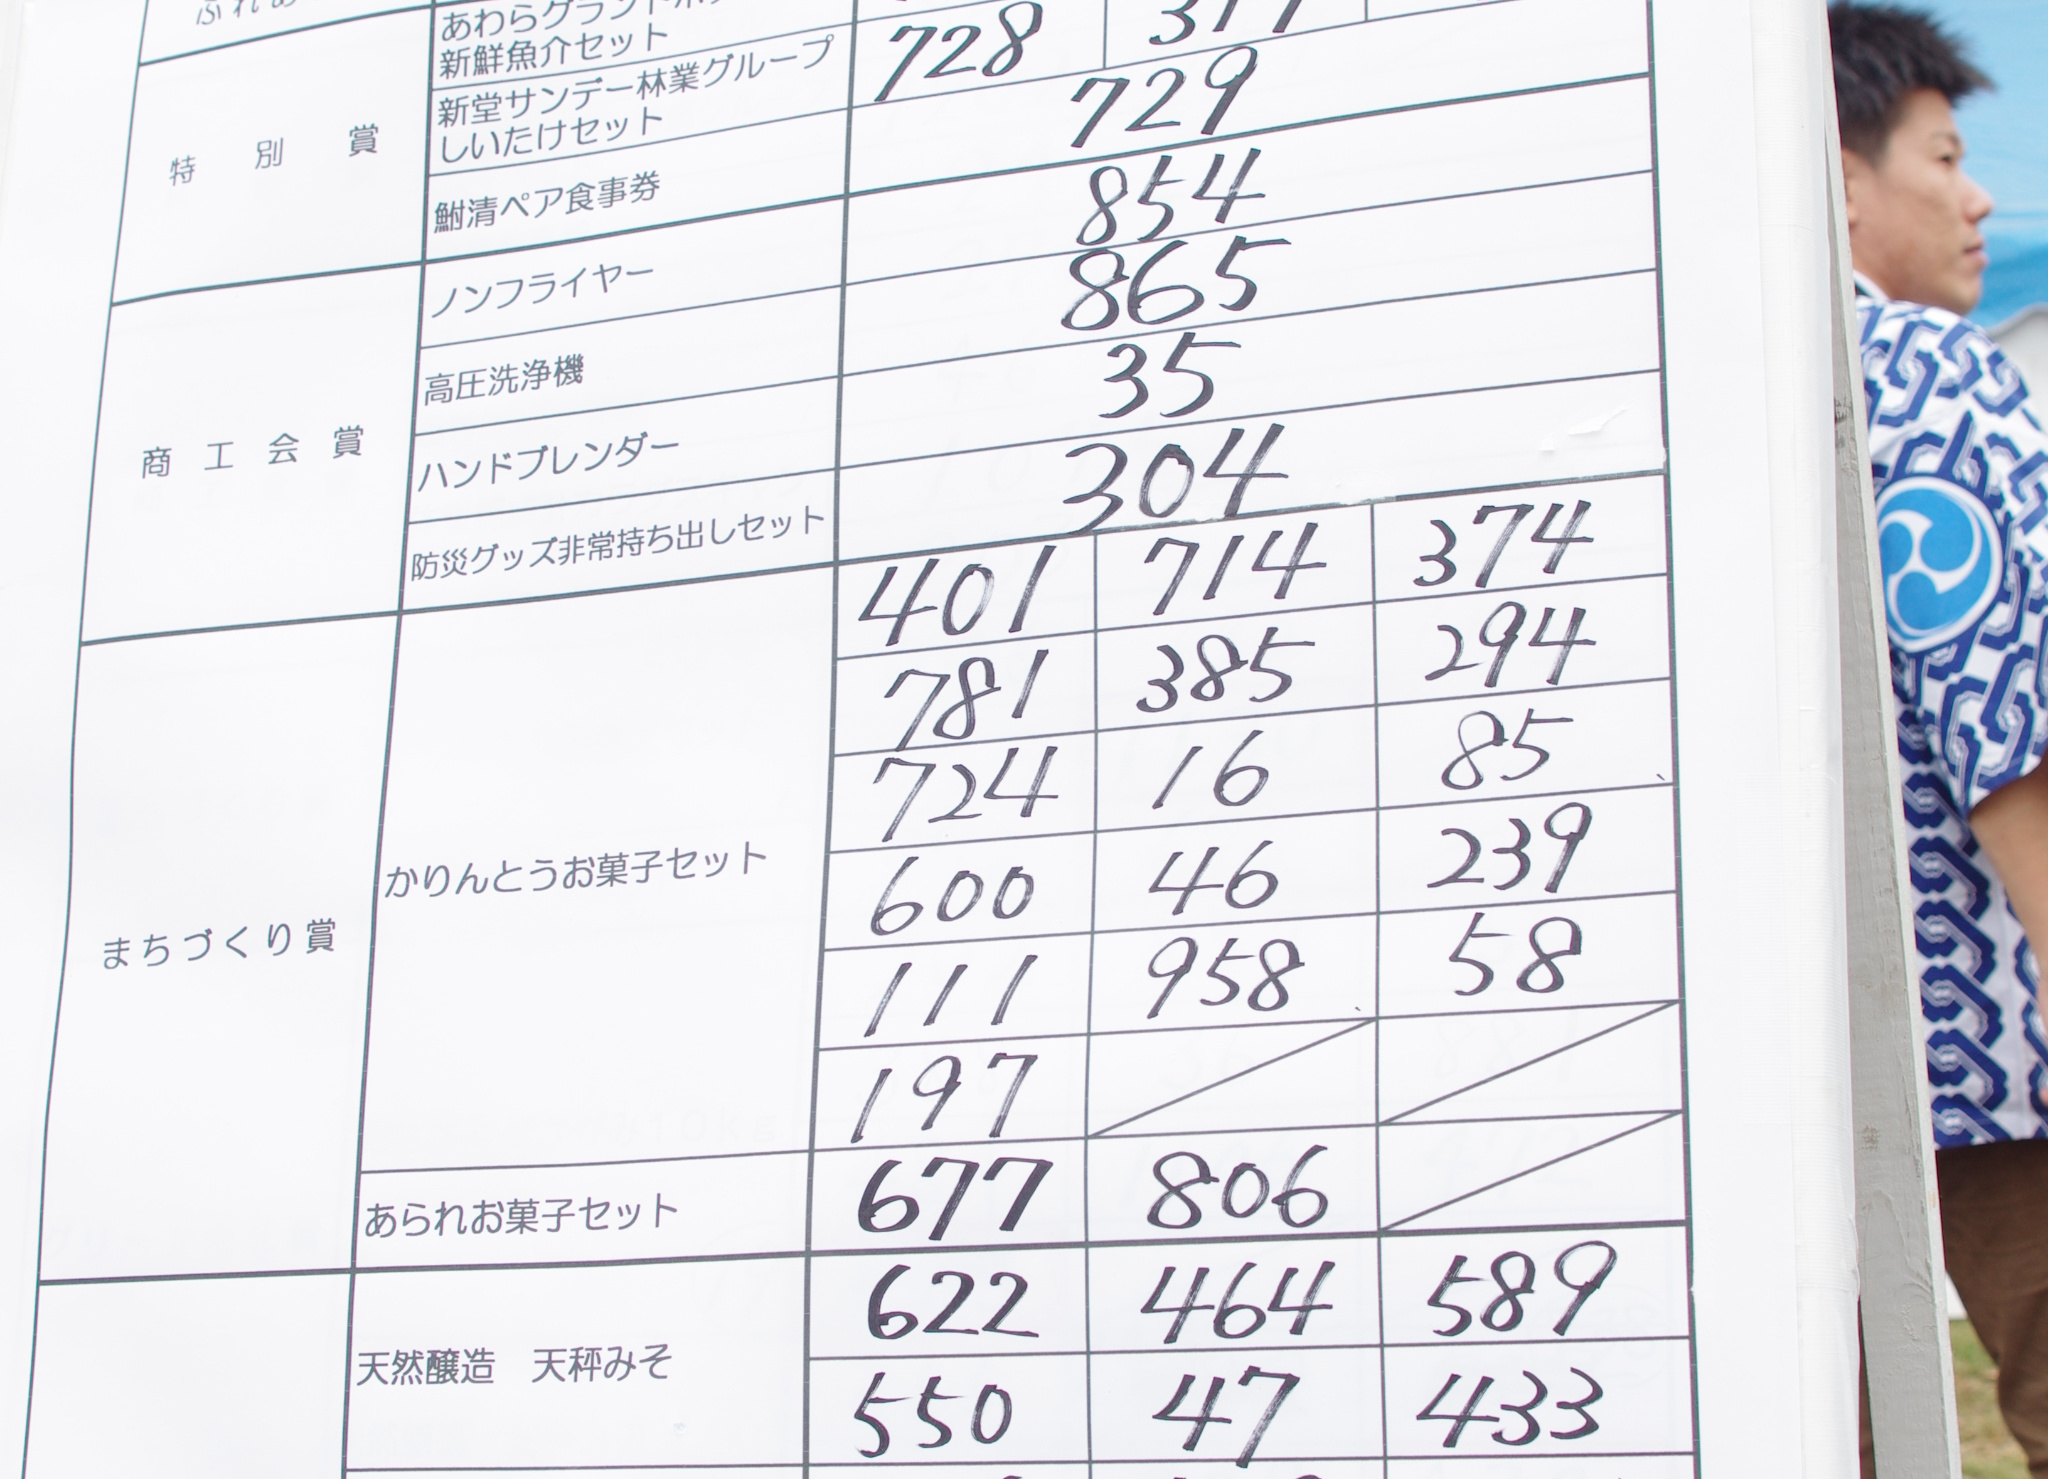 新鮮魚介セット 728
新堂サンデー林業グループ
しいたけセット 729
特別賞
鮒清ペア食事券 854
ノンフライヤー 865
高圧洗浄機 35
商工会賞
ハンドブレンダー 304
防災グッズ非常持ち出しセット
401 714 374
781 385 294
724 16 85
かりんとうお菓子セット
600 46 239
まちづくり賞
111 958 58
197
あられお菓子セット 677 806
622 464 589
天然醸造 天秤みそ
550 47 433